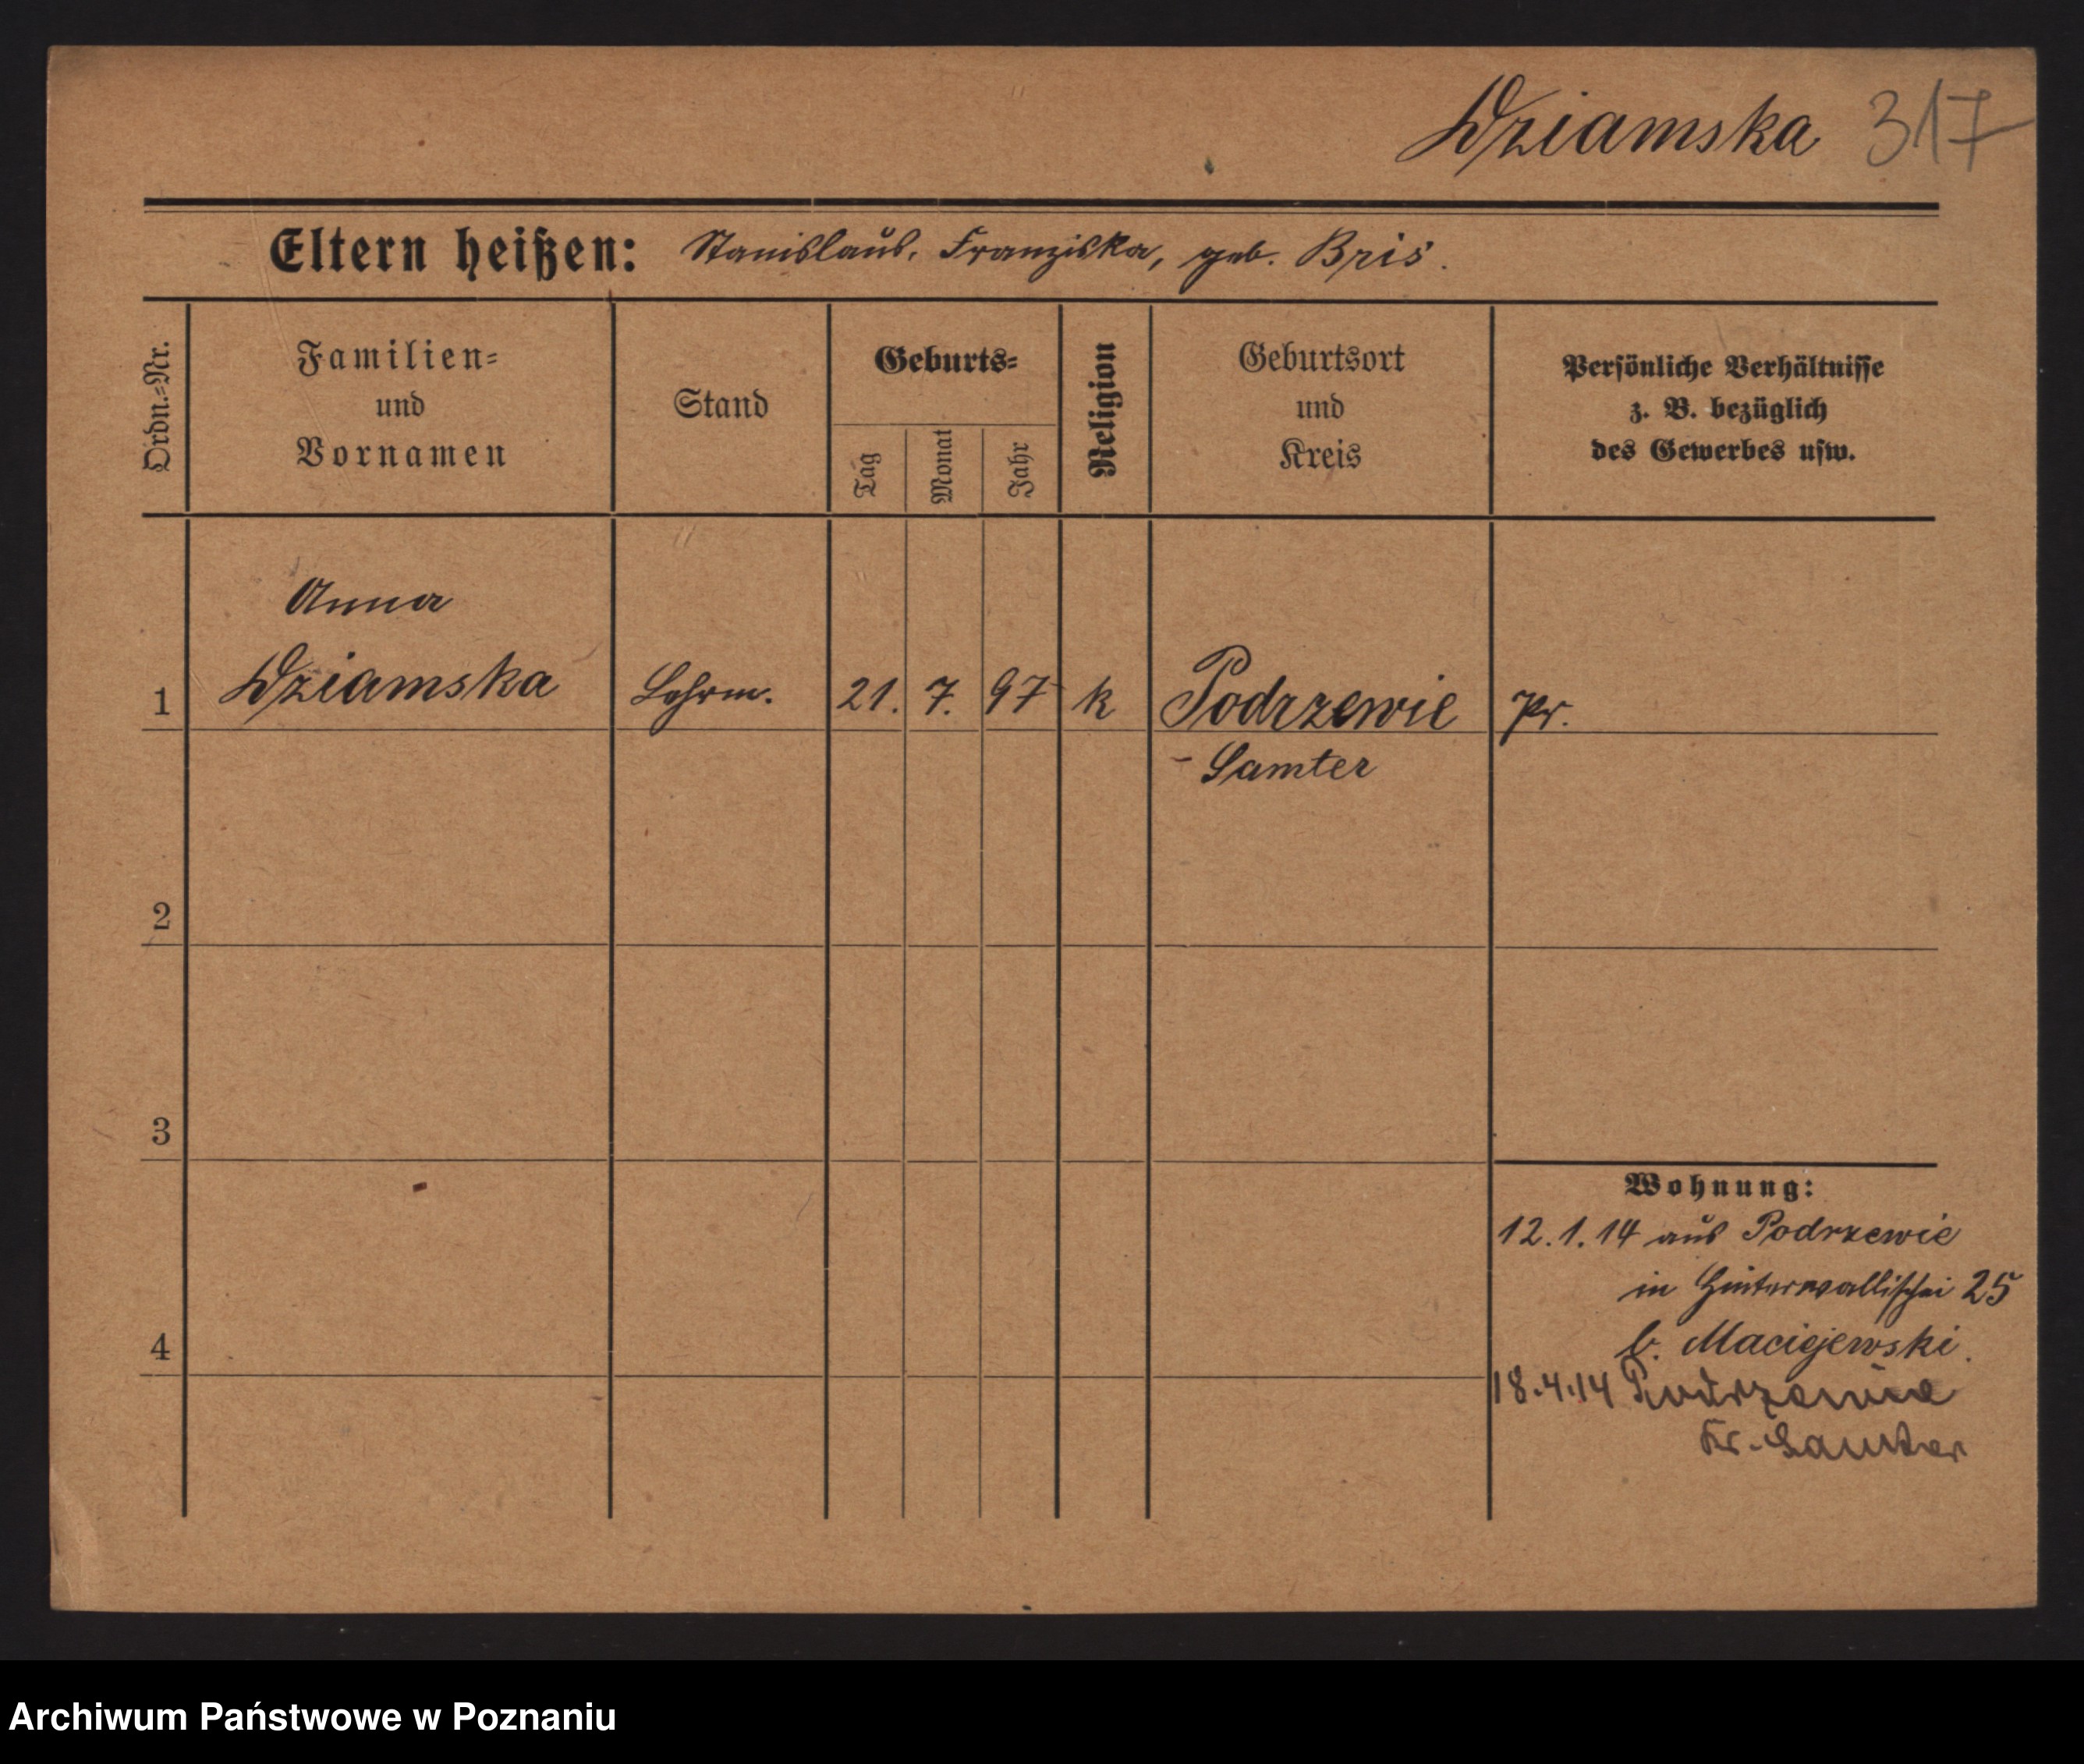 Dziamska 317
Eltern heißen: Stanislaus, Franziska, geb. Bris.
Ordn.=Nr.
Familien=
und
Vornamen
Stand
Geburts=
Tag
Monat
Jahr
Religion
Geburtsort
und
Kreis
Persönliche Verhältnisse
z. B. bezüglich
des Gewerbes usw.
Anna
1 Dziamska Lehrm. 21. 7. 97 k Podrzewie Pr.
- Samter
2
3
Wohnung:
12.1.14 aus Podrzewie
in Hinterwallischei 25
4 b. Maciejewski.
18.4.14 Podrzewie
Kr. Samter
Archiwum Państwowe w Poznaniu